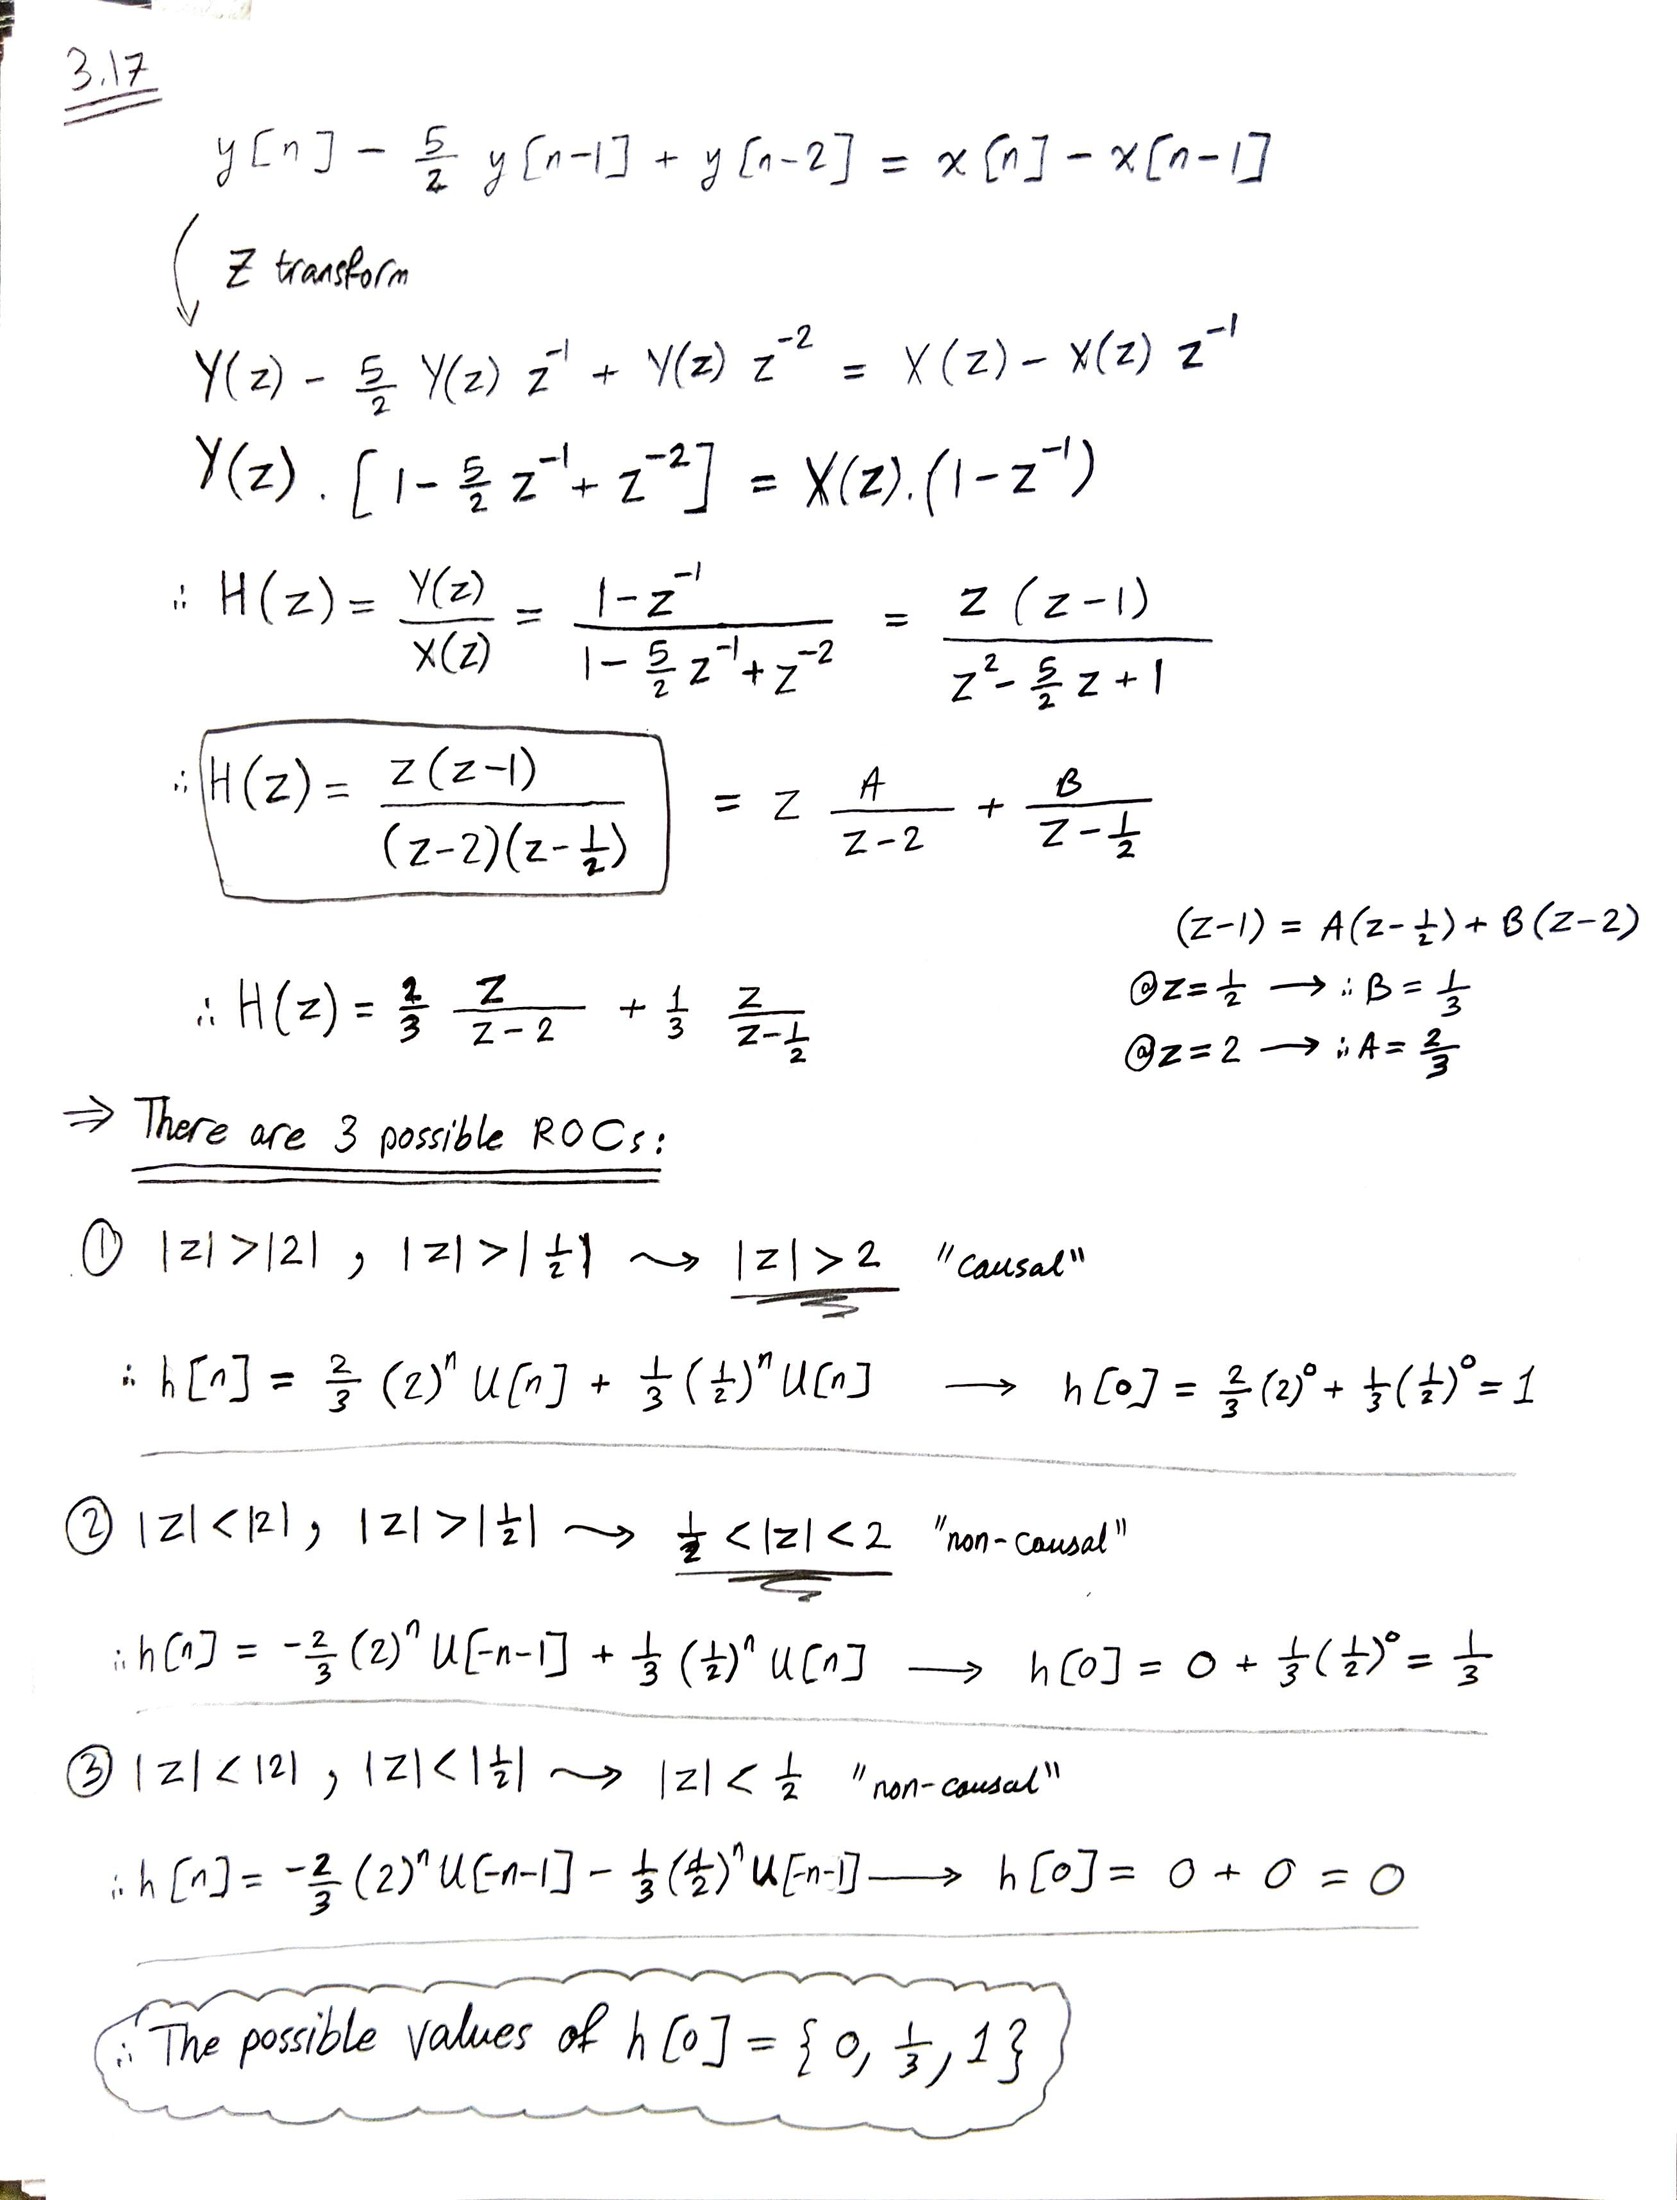 3.17
y[n] - 5/2 y[n-1] + y[n-2] = x[n] - x[n-1]
Z transform
Y(z) - 5/2 Y(z) z⁻¹ + Y(z) z⁻² = X(z) - X(z) z⁻¹
Y(z) . [1 - 5/2 z⁻¹ + z⁻²] = X(z).(1-z⁻¹)
∴ H(z) = Y(z)/X(z) = (1-z⁻¹)/(1 - 5/2 z⁻¹ + z⁻²) = z(z-1)/(z² - 5/2 z + 1)
∴ H(z) = z(z-1)/((z-2)(z-1/2)) = z A/(z-2) + B/(z-1/2)
(z-1) = A(z-1/2) + B(z-2)
@z=1/2 → ∴ B = 1/3
@z=2 → ∴ A = 2/3
∴ H(z) = 2/3 z/(z-2) + 1/3 z/(z-1/2)
⇒ There are 3 possible ROCs:
① |z|>|2| , |z|>|1/2| ⇝ |z|>2 "causal"
∴ h[n] = 2/3 (2)ⁿ U[n] + 1/3 (1/2)ⁿ U[n] → h[0] = 2/3 (2)⁰ + 1/3 (1/2)⁰ = 1
② |z|<|2| , |z|>|1/2| ⇝ 1/2 <|z|<2 "non-causal"
∴ h[n] = -2/3 (2)ⁿ U[-n-1] + 1/3 (1/2)ⁿ U[n] → h[0] = 0 + 1/3 (1/2)⁰ = 1/3
③ |z|<|2| , |z|<|1/2| ⇝ |z| < 1/2 "non-causal"
∴ h[n] = -2/3 (2)ⁿ U[-n-1] - 1/3 (1/2)ⁿ U[-n-1] → h[0] = 0 + 0 = 0
∴ The possible values of h[0] = {0, 1/3, 1}